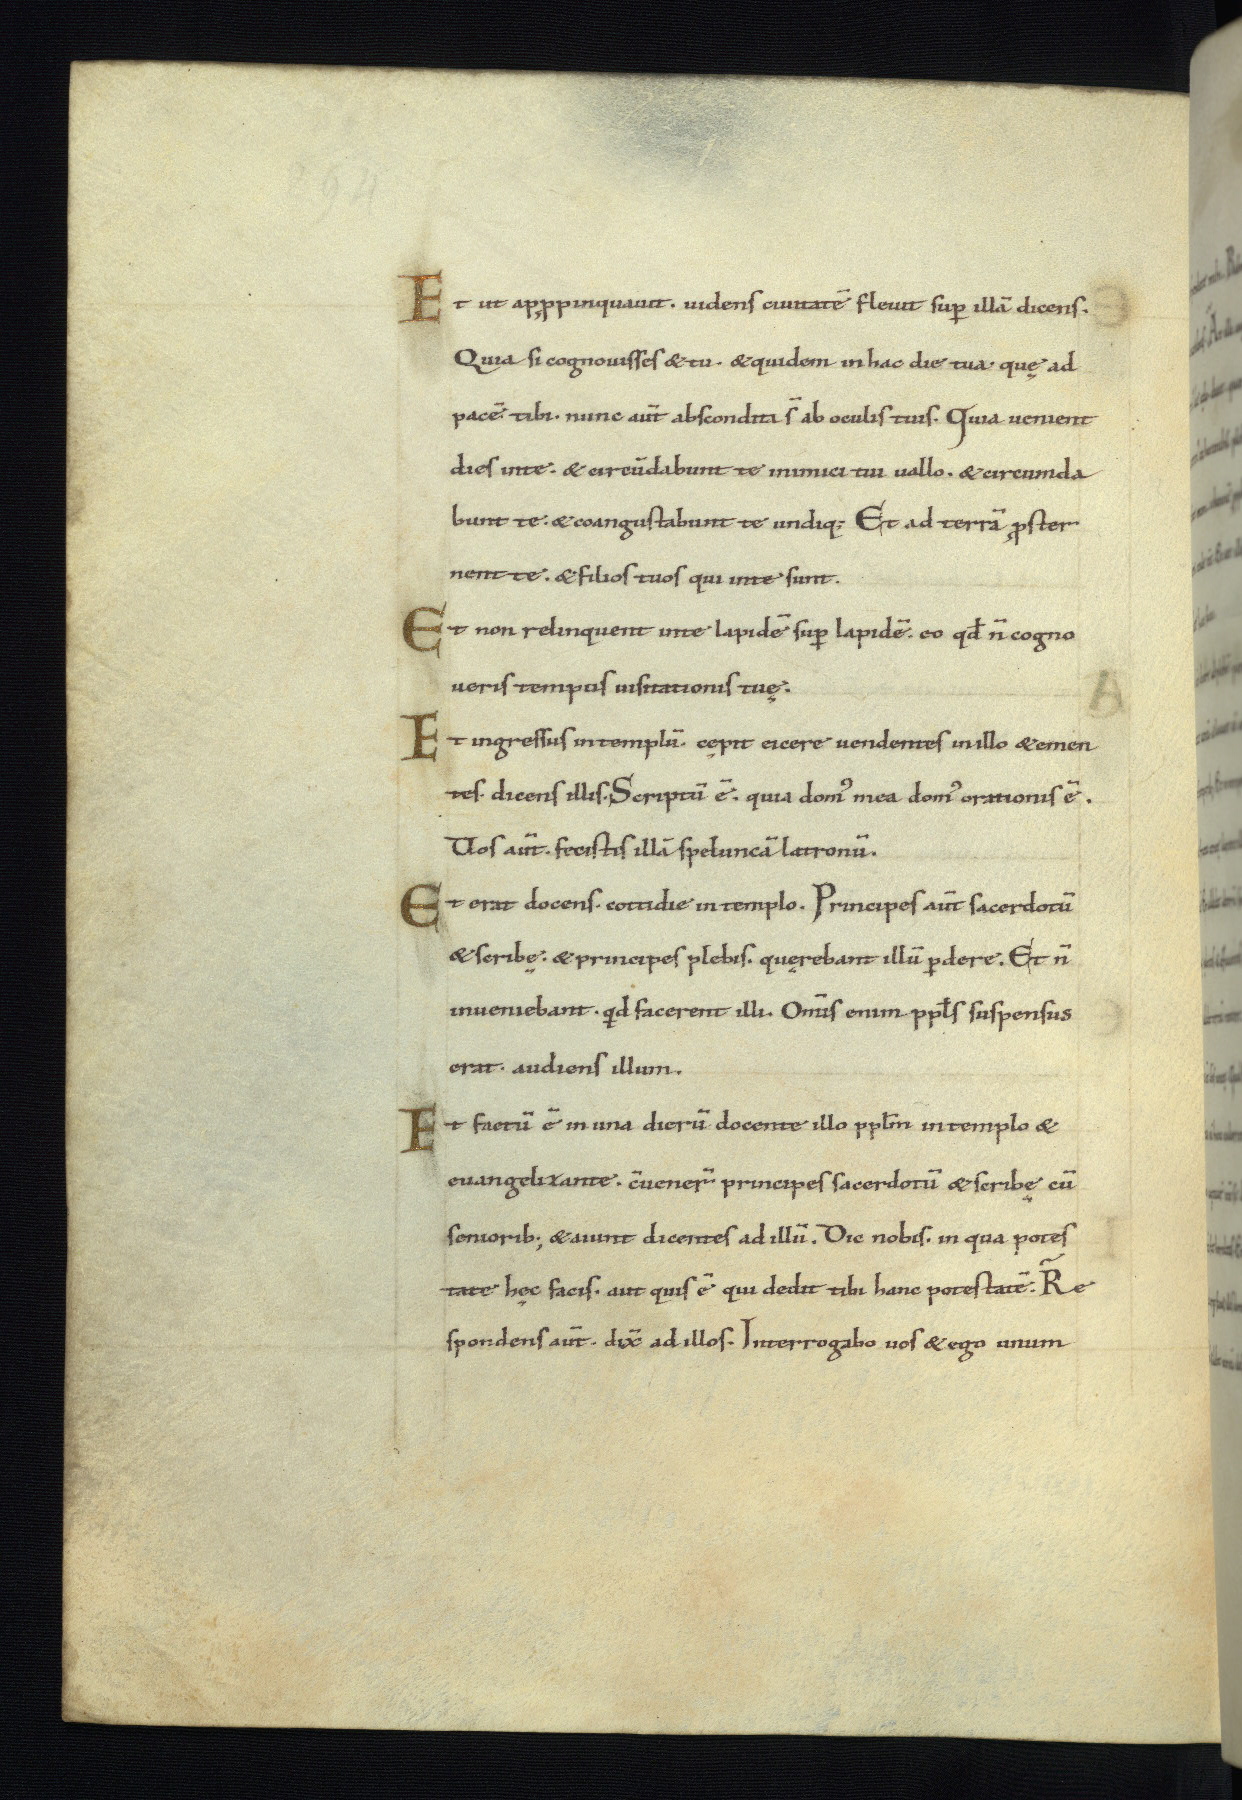 Et ut apꝓpinquauit. uidens ciuitatē fleuit suꝑ illā dicens.
Quia si cognouisses & tu. & quidem in hac die tua. quę ad
pacē tibi. nunc aūt abscondita s̄ ab oculis tuis. Quia uenient
dies in te. & circūdabunt te inimici tui uallo. & circumda
bunt te. & coangustabunt te undiq; Et ad terrā ꝓster
nent te. & filios tuos qui in te sunt.
Et non relinquent in te lapidē suꝑ lapidē. eo qđ n̄ cogno
ueris tempus uisitationis tuę.
Et ingressus in templū. cępit eicere uendentes in illo & emen
tes. dicens illis. Scriptū ē. quia domꝰ mea domꝰ orationis ē.
Uos aūt. fecistis illā speluncā latronū.
Et erat docens. cottidie in templo. Principes aūt sacerdotū
& scribę. & principes plebis. quęrebant illū ꝑdere. Et n̄
inueniebant. qđ facerent illi. Om̄s enim ppl̄s suspensus
erat. audiens illum.
Et factū ē in una dierū docente illo ppl̄m in templo &
euangelizante. c̄uener̄ principes sacerdotū & scribę cū
seniorib; & aiunt dicentes ad illū. Dic nobis. in qua potes
tate hęc facis. aut quis ē qui dedit tibi hanc potestatē. Re
spondens aūt. dix̄ ad illos. Interrogabo uos & ego unum